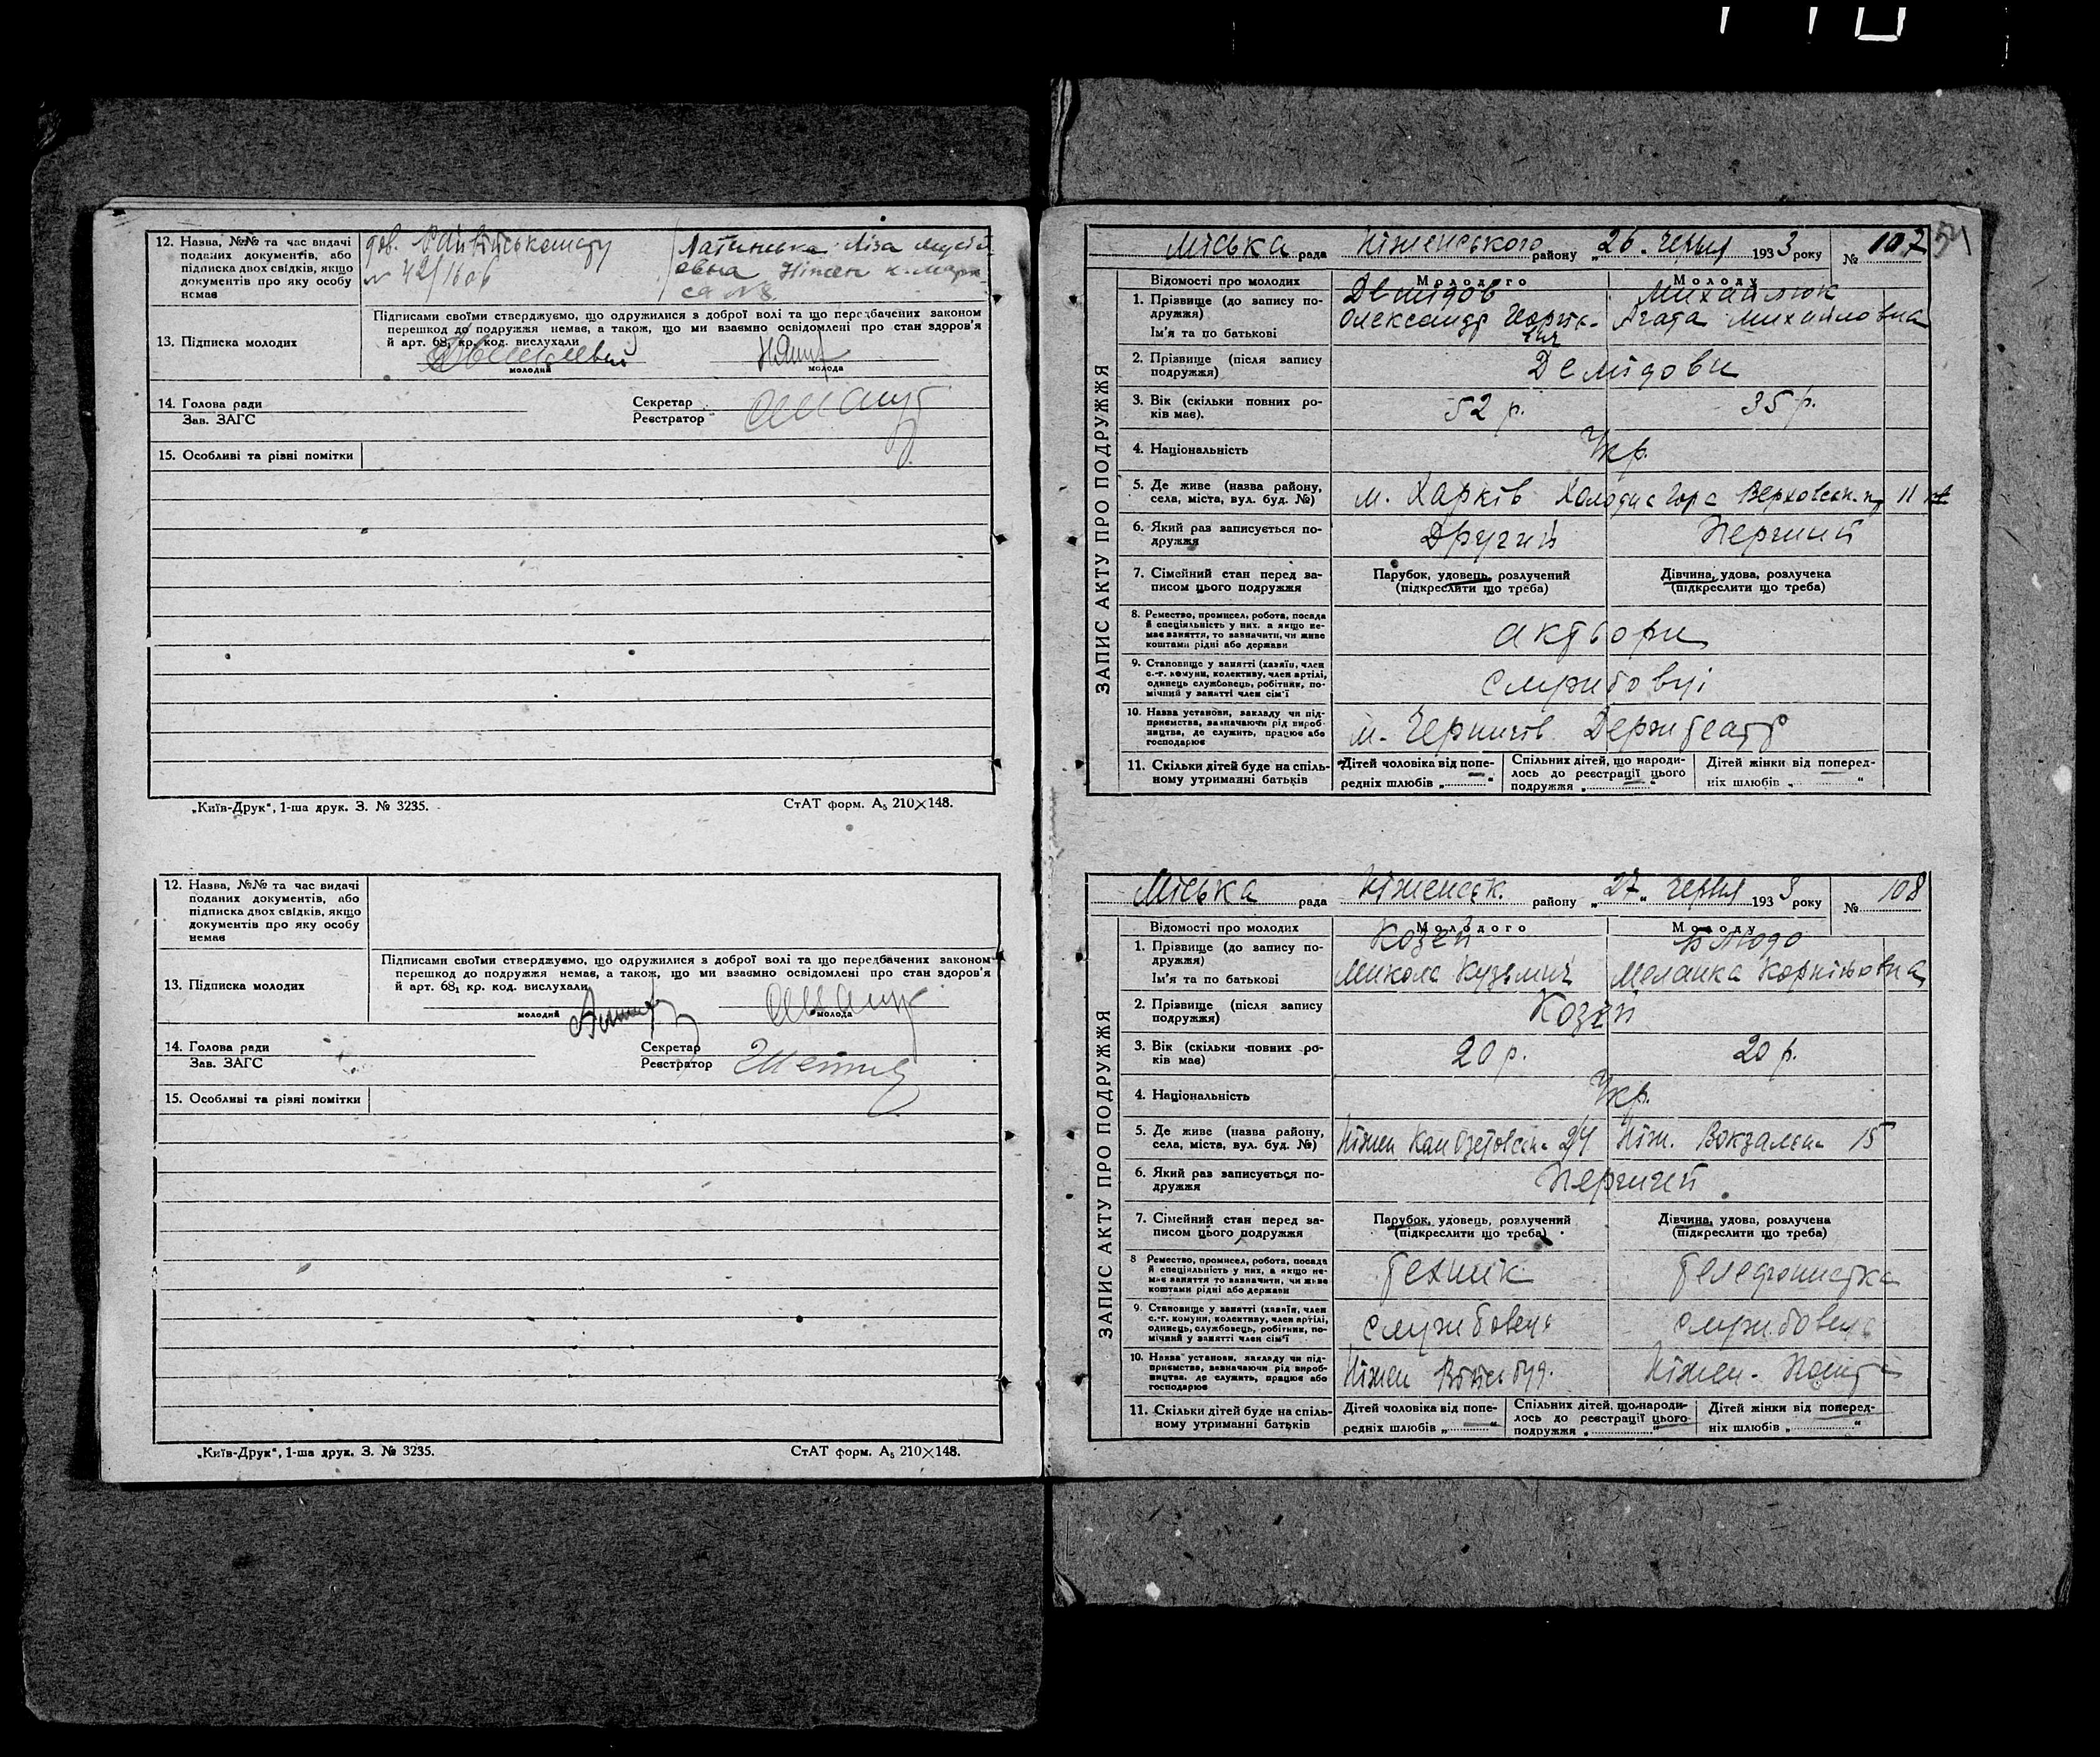 12. Назва, №№ та час видачі
поданих документів, або
підписка двох свідків, якщо
документів про яку особу
немає
дов. Райвійськомату
№ 42/1606
Ліза
Ніжен к. Марк
са № 8
Підписами своїми стверджуємо, що одружилися з доброї волі та що передбачених законом
перешкод до подружжя немає, а також, що ми взаємно освідомлені про стан здоров'я
й арт. 68₁ кр. код. вислухали
13. Підписка молодих
молодий
молода
14. Голова ради
Зав. ЗАГС
Секретар
Реєстратор
15. Особливі та різні помітки
„Київ-Друк“, 1-ша друк. З. № 3235.
СтАТ форм. А₅ 210×148.
12. Назва, №№ та час видачі
поданих документів, або
підписка двох свідків, якщо
документів про яку особу
немає
Підписами своїми стверджуємо, що одружилися з доброї волі та що передбачених законом
перешкод до подружжя немає, а також, що ми взаємно освідомлені про стан здоров'я
й арт. 68₁ кр. код. вислухали
13. Підписка молодих
молодий
молода
14. Голова ради
Зав. ЗАГС
Секретар
Реєстратор
15. Особливі та різні помітки
„Київ-Друк“, 1-ша друк. З. № 3235.
СтАТ форм. А₅ 210×148.
54
Міська рада Ніженського району „26„ Червня 1933 року № 107
ЗАПИС АКТУ ПРО ПОДРУЖЖЯ
Відомості про молодих
Молодого
Молоду
1. Прізвище (до запису подружжя)
Демідов
Михайлюк
Ім'я та по батькові
Олександр Георгієвич
Агата Михайловна
2. Прізвище (після запису
подружжя)
Демідови
3. Вік (скільки повних ро-
ків має).
52 р.
35 р.
4. Національність
Укр.
5. Де живе (назва району,
села, міста, вул. буд. №)
м. Харків Холодна Гора 11
6. Який раз записується по-
дружжя
Другий
Перший
7. Сімейний стан перед за-
писом цього подружжя
Парубок, удовець, розлучений
(підкреслити що треба)
Дівчина, удова, розлучена
(підкреслити що треба)
8. Ремество, промисел, робота, посада
й спеціяльність у них, а якщо не-
має заняття, то зазначити, чи живе
коштами рідні або держави
актьори
9. Становище у занятті (хазяїн, член
с.-г. комуни, колективу, член артілі,
одинець службовець, робітник, по-
мічний у занятті член сім'ї
службовці
10. Назва установи, закладу чи під-
приємства, зазначаючи рід вироб-
ництва, де служить, працює або
господарює
м. Чернигів Держтеатр
11. Скільки дітей буде на спіль-
ному утриманні батьків
Дітей чоловіка від попе-
редніх шлюбів „ “
Спільних дітей, що народи-
лось до реєстрації цього
подружжя „ “
Дітей жінки від поперед-
ніх шлюбів „ “
Міська рада Ніженськ. району „27„ Червня 1933 року № 108
ЗАПИС АКТУ ПРО ПОДРУЖЖЯ
Відомості про молодих
Молодого
Молоду
1. Прізвище (до запису по-
дружжя)
Козей
Блюдо
Ім'я та по батькові
Микола Кузьмич
Меланка Корніївна
2. Прізвище (після запису
подружжя)
Козей
3. Вік (скільки повних ро-
ків має)
20 р.
20 р.
4. Національність
Укр.
5. Де живе (назва району,
села, міста, вул. буд. №)
Ніжен 24
Ніж. Вокзальна 15
6. Який раз записується по-
дружжя
Перший
7. Сімейний стан перед за-
писом цього подружжя
Парубок, удовець, розлучений
(підкреслити що треба)
Дівчина, удова, розлучена
(підкреслити що треба)
8 Ремество, промисел, робота, посада
й спеціяльність у них, а якщо не-
має заняття то зазначити, чи живе
коштами рідні або держави
технік
телефонистка
9. Становище у занятті (хазяїн, член
с.-г. комуни, колективу, член артілі,
одинець, службовець, робітник, по-
мічний у занятті член сім'ї
службовець
службовець
10. Назва установи, закладу чи під-
приємства, зазначаючи рід вироб-
ництва, де служить, працює або
господарює
Ніжен Військбуд.
Ніжен. Пошта
11. Скільки дітей буде на спіль-
ному утриманні батьків
Дітей чоловіка від попе-
редніх шлюбів „ “
Спільних дітей, що народи-
лось до реєстрації цього
подружжя „ “
Дітей жінки від поперед-
ніх шлюбів „ “